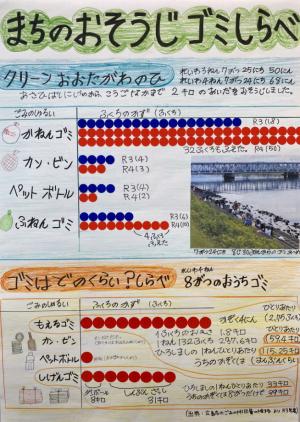 まちのおそうじゴミしらべ
クリーンおおたがわのひ
れいわ3ねん 7がつ25にち 50にん
れいわ4ねん 7がつ24にち 68にん
2キロのあいだをおそうじしました。
ごみのしゅるい
ふくろのかず (ふくろ)
かねんゴミ
R3(18)
32ふくろもふえた。 R4(50)
カン・ビン
R3(4)
R4(3)
ペットボトル
R3(4)
R4(2)
ふねんゴミ
R3(6)
4ふくろふえた
7がつ24にち
ゴミはどのくらい?しらべ
れいわ4ねん
8がつのおうちゴミ
ごみのしゅるい
ふくろのかず (ふくろ)
もえるゴミ
かぞく4にん
ひとりあたり
1ふくろのおもさ 1.8キロ
カン・ビン
1ねん132ふくろ 237.6キロ
59.4キロ
ペットボトル
ひろしまの1ねんひとりあたり
115.25キロ
うちのおうちは
しげんゴミ
ダンボール
8キロ
しんぶん ざっし
31キロ
ひろしまの1ねんひとりあたり 33キロ